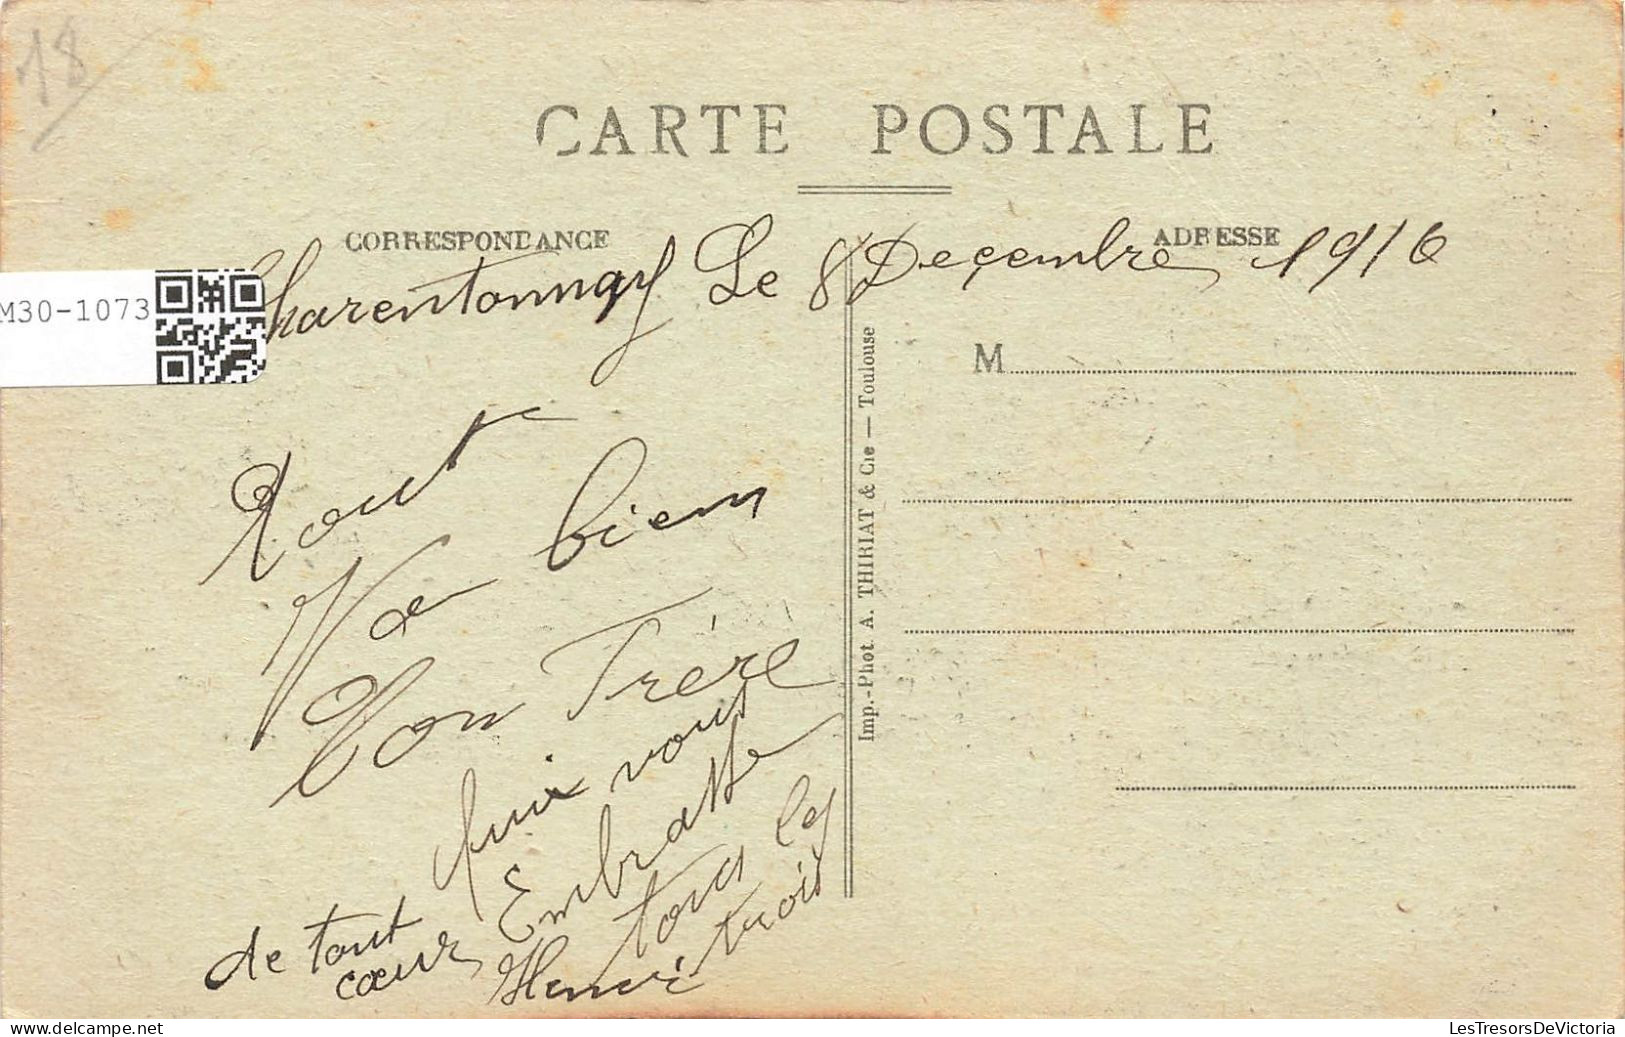 18
CARTE POSTALE
CORRESPONDANCE
ADRESSE
Charentonnay Le 8 Decembre 1916
M30-1073
M
Tout
Va bien
Ton Frère
qui vous
Embrasse
tous les
trois
de tout
cœur
Henri
Imp.-Phot. A. THIRIAT & Cie — Toulouse
LesTresorsDeVictoria